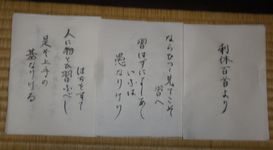 利休百首より
ならひつゝ見てこそ
習へ
習はずによしあし
いふは
愚なりけり
はぢをすて
人に物とひ習ふべし
是ぞ上手の
基なりける